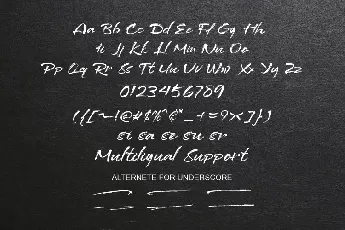 Aa Bb Cc Dd Ee Ff Gg Hh
Ii Jj Kk Ll Mm Nn Oo
Pp Qq Rr Ss Tt Uu Vv Ww Xx Yy Zz
0123456789
er sa se su sr
Multiligual Support
ALTERNETE FOR UNDERSCORE